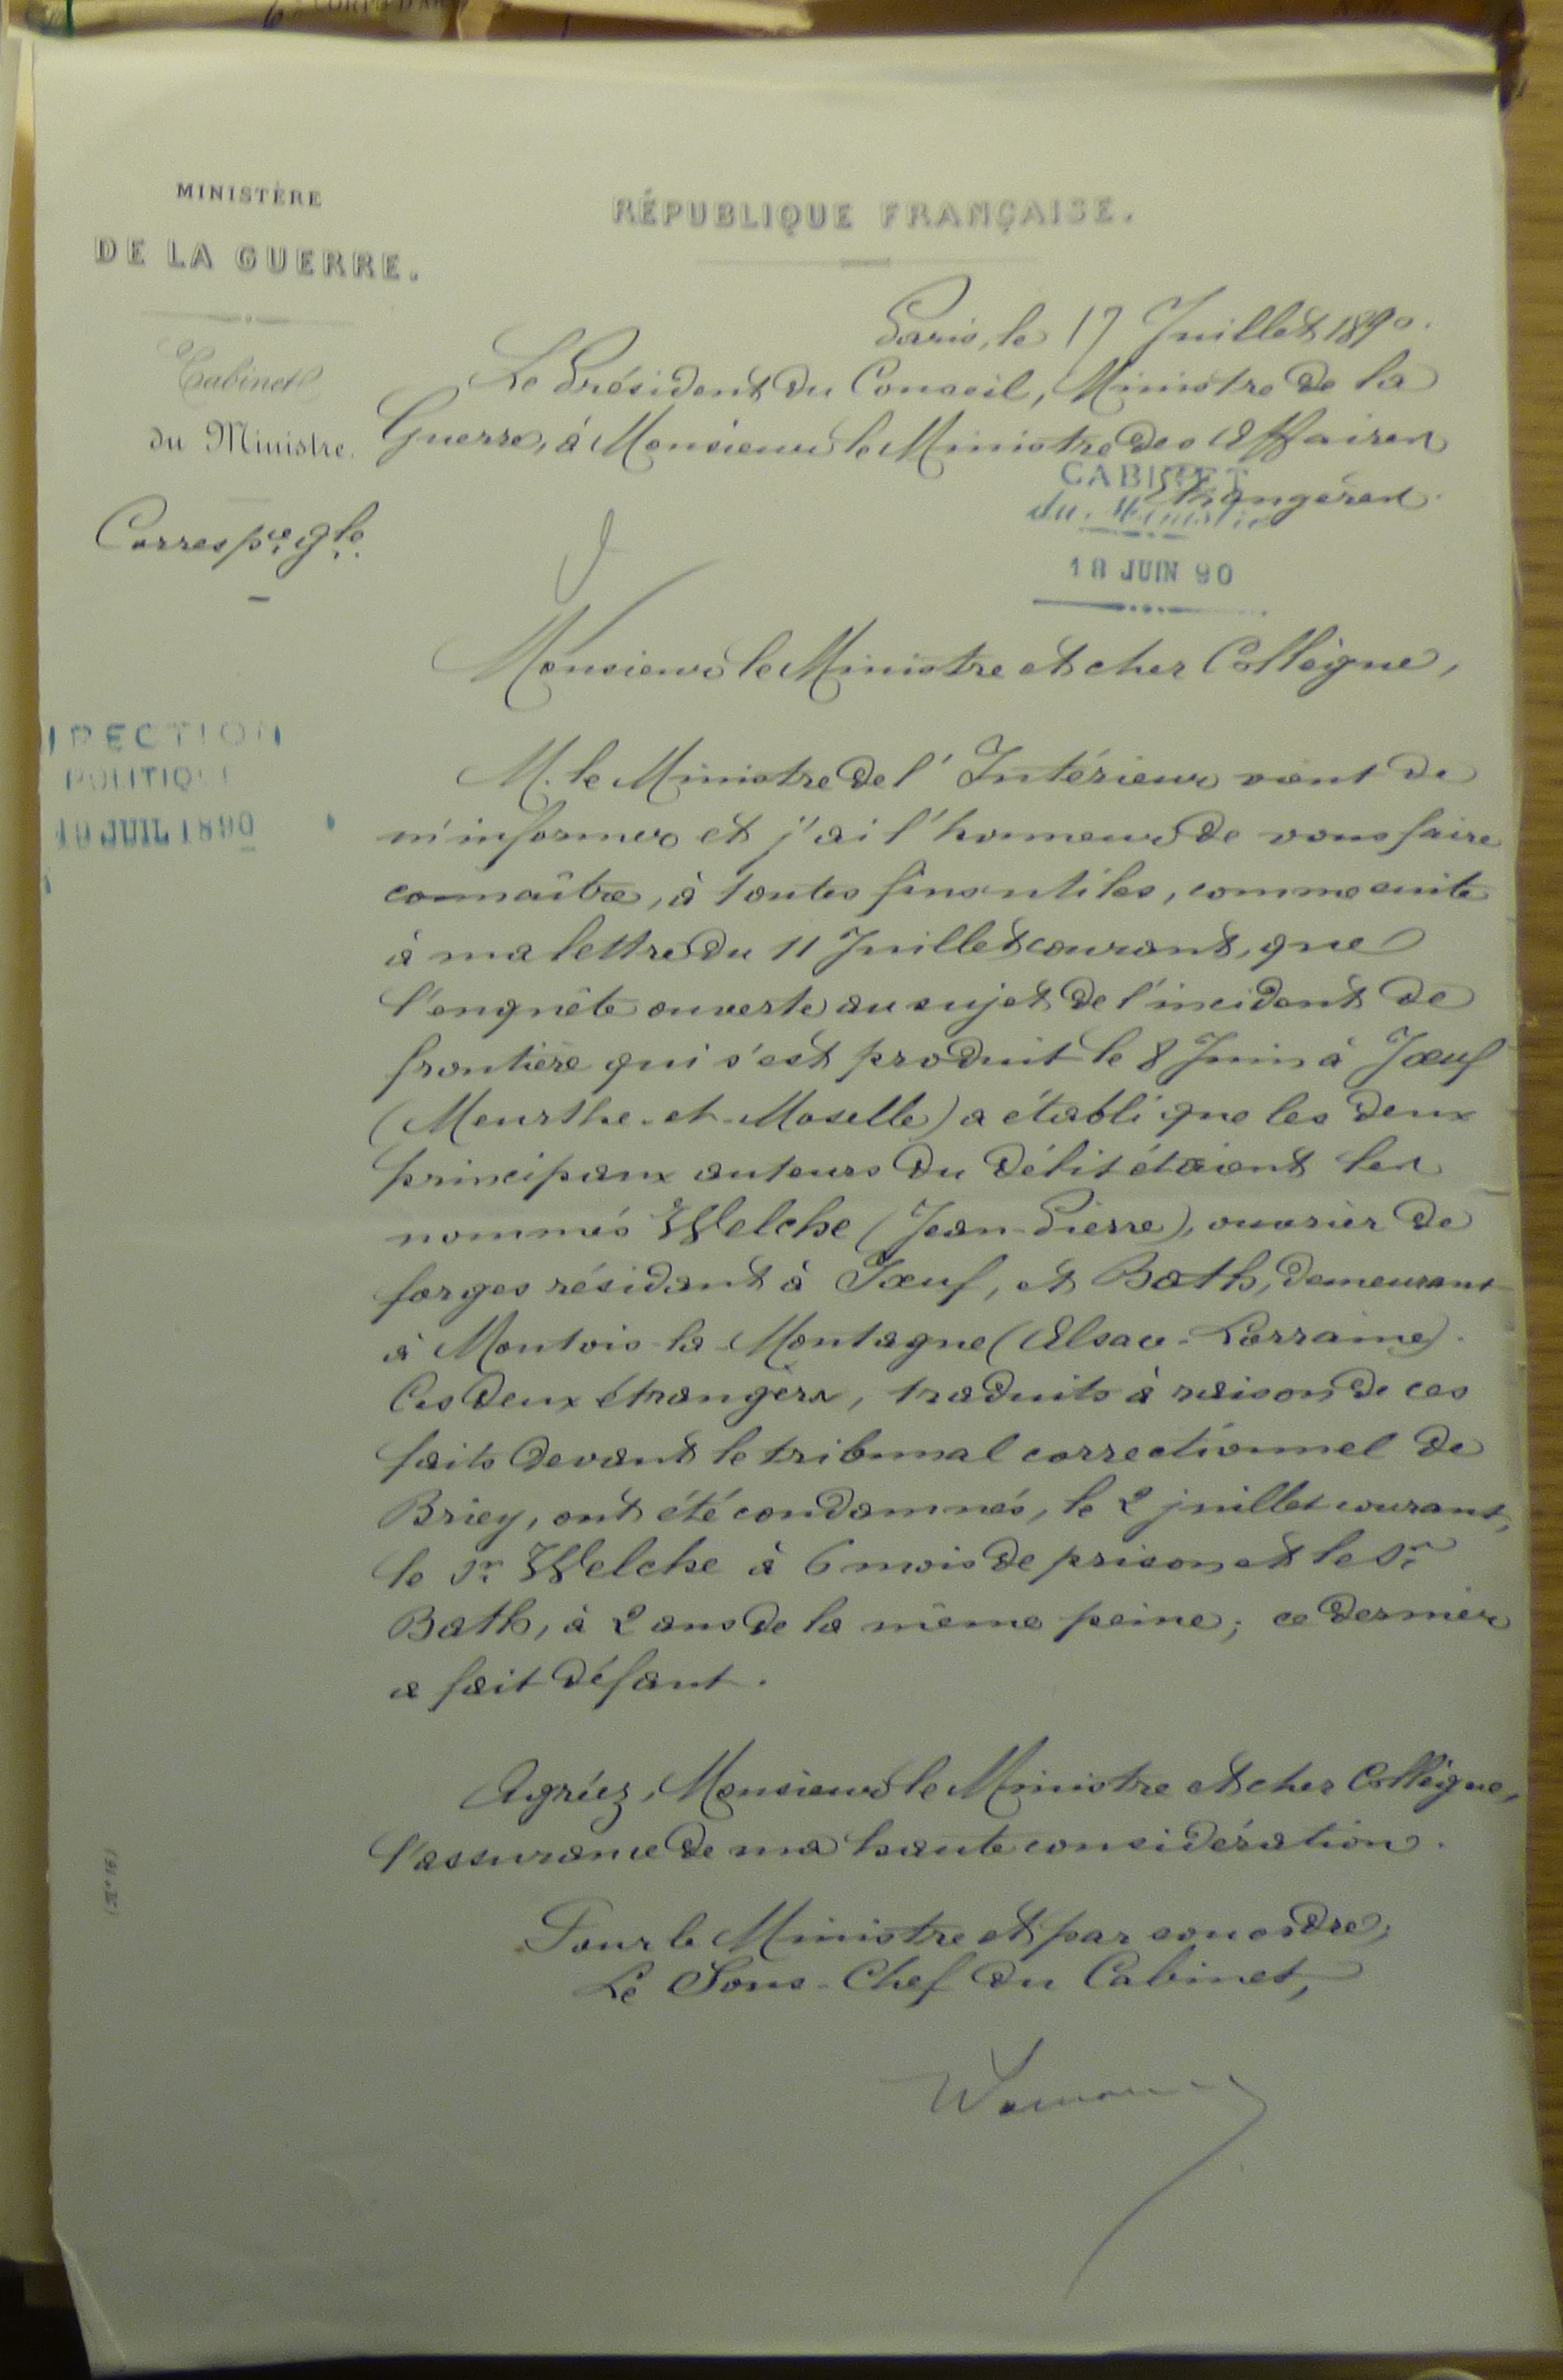 MINISTÈRE
DE LA GUERRE.
Cabinet
du Ministre.
Corresp.ce g.le
RÉPUBLIQUE FRANÇAISE.
Paris, le 17 Juillet 1890.
Le Président du Conseil, Ministre de la
Guerre, à Monsieur le Ministre des Affaires
Etrangères.
CABINET
du Ministre
18 JUIN 90
Monsieur le Ministre et cher Collègue,
DIRECTION
POLITIQUE
19 JUIL 1890
M. le Ministre de l'Intérieur vient de
m'informer et j'ai l'honneur de vous faire
connaître, à toutes fins utiles, comme suite
à ma lettre du 11 Juillet courant, que
l'enquête ouverte au sujet de l'incident de
frontière qui s'est produit le 8 Juin à Jœuf
(Meurthe-et-Moselle) a établi que les deux
principaux auteurs du délit étaient les
nommés Welche (Jean-Pierre), ouvrier de
forges résidant à Jœuf, et Bath, demeurant
à Montois-la-Montagne (Alsace-Lorraine).
Ces deux étrangers, traduits à raison de ces
faits devant le tribunal correctionnel de
Briey, ont été condamnés, le 2 juillet courant,
le Sr. Welche à 6 mois de prison et le Sr.
Bath, à 2 ans de la même peine; ce dernier
a fait défaut.
Agréez, Monsieur le Ministre et cher Collègue,
l'assurance de ma haute considération.
Pour le Ministre et par son ordre,
Le Sous-Chef du Cabinet,